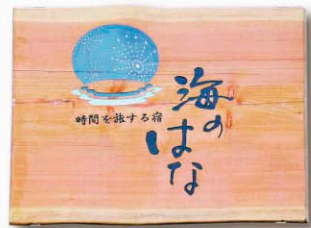 時間を旅する宿
海の
はな